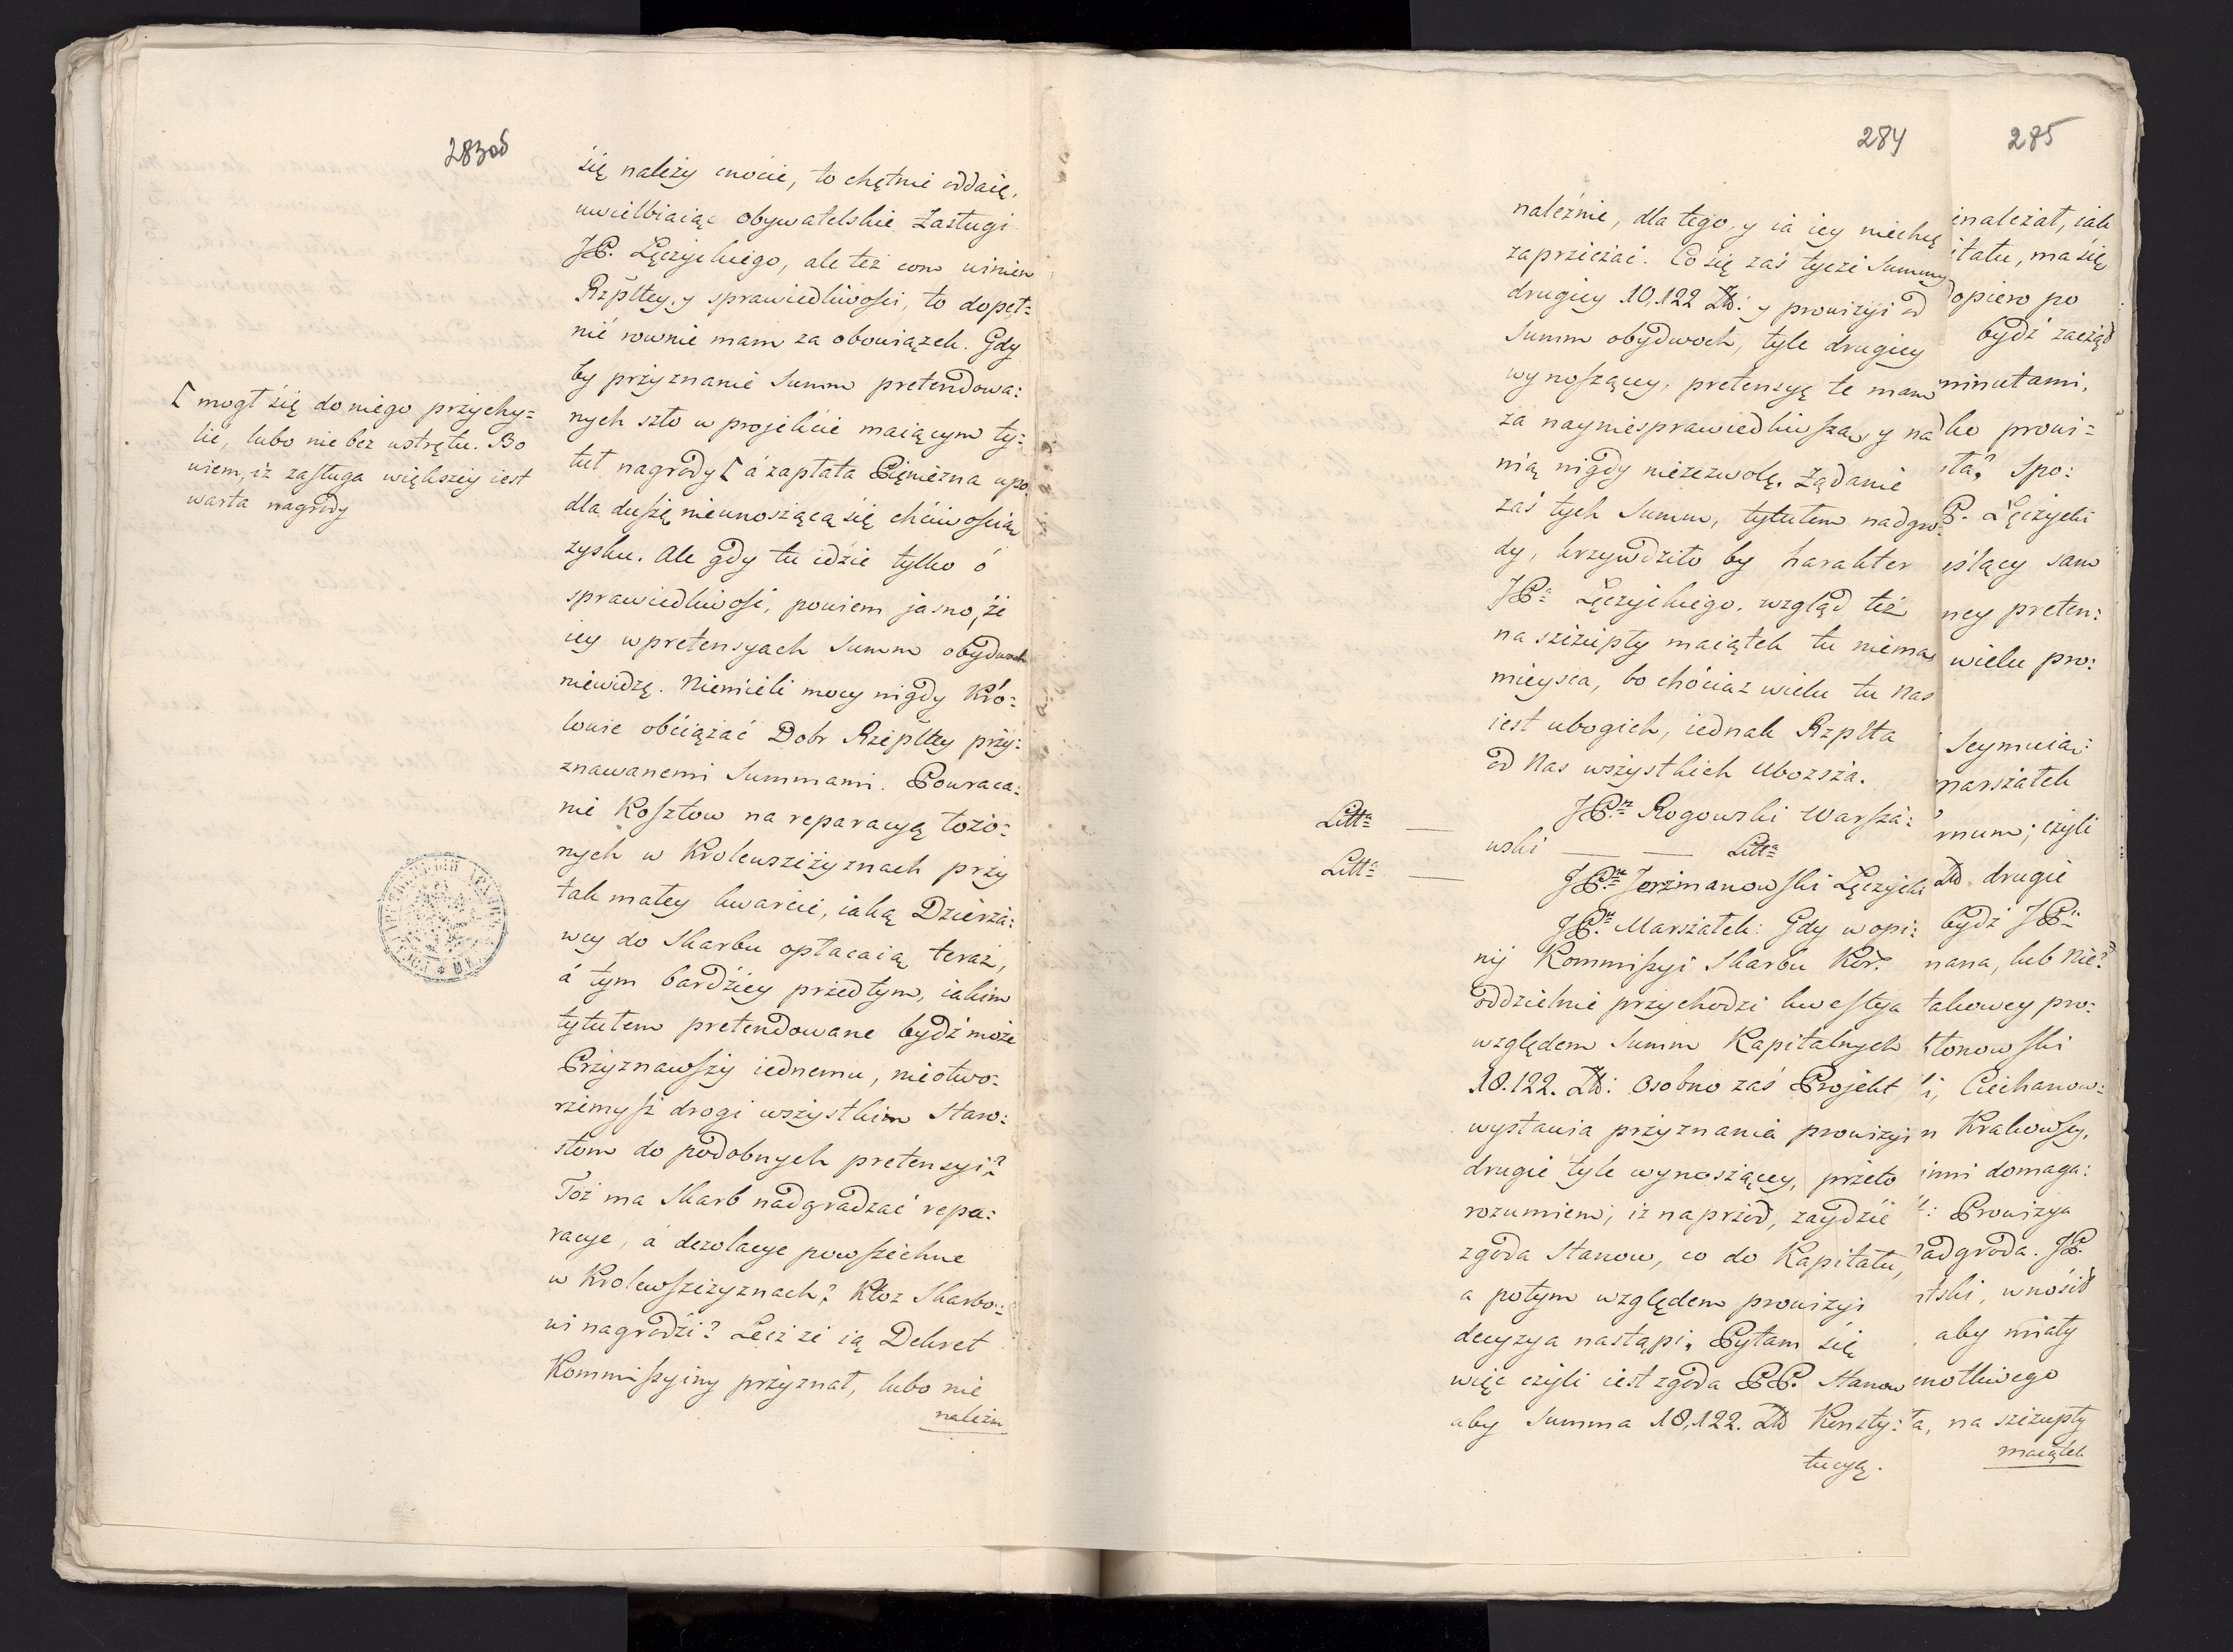 283об
się należy cnocie, to chętnie oddaię,
uwielbiaiąc obywatelskie Zasługi
JP. Łęczyckiego, ale też com winien
Rzpltey, y sprawiedliwości, to dopeł=
nić rownie mam za obowiązek. Gdy
by przyznanie Summ pretendowa:
nych szło w projekcie maiącym ty=
tuł nagrody [ á zapłata Pięniężna upo
dla duszę nieunoszącą się chciwością
zysku. Ale gdy tu idzie tylko ó
sprawiedliwość, powiem jasno, że
iey w pretensyach Summ obydwoch
niewidzę. Niemieli mocy nigdy Kró=
lowie obciążać Dobr Rzepltey przy=
znawanemi Summami. Powraca:
nie Kosztow na reparacyą łożo=
nych w Krolewszczyznach przy
tak małey kwarcie, iaką Dzierża:
wcy do Skarbu opłacaią teraz,
á tym bardziey przedtym, iakim
tytułem pretendowane bydź może
Przyznawszy iednemu, nieotwo=
rzemysz drogi wszystkim Staro:
stom do podobnych pretensyi?
Toż ma Skarb nadgradzać repa:
racye, á dezolacye powszechne
w Krolewszczyznach? Ktoż Skarbo=
wi nagrodzi? Lecz że ią Dekret
Kommissyiny przyznał, lubo nie
należn
[ mogł się do niego przychy=
lić, lubo nie bez wstrętu. Bo
wiem, iż zasługa większey iest
warta nagrody
284
należnie, dla tego, y ia iey niechcę
zaprzeczać. Co się zaś tycze Summy
drugiey 10,122 Zł: y prowizyi od
Summ obydwoch, tyle drugiey
wynoszącey, pretensyę te mam
za nayniesprawiedliwszą, y na
nią nigdy niezezwolę. Żądanie
zaś tych Summ, tytułem nadgro=
dy, krzywdziło by harakter
JPa Łęczyckiego. wzgląd też
na szczupły maiątek tu niema
mieysca, bo chóciaż wielu tu Nas
iest ubogich, iednak Rzplta
od Nas wszystkich Ubozsza.
JPn Rogowski Warszá=
Litta
wski Litta
Litta
JPn Jerzmanowski Łęczycki
JPn Marszałek: Gdy w opi:
nij Kommissyi Skarbu Kor.
oddzielnie przychodzi kwestya
względem Summ Kapitalnych
18.122. Zł: Osobno zaś Projekt
wystawia przyznania prowizyi
drugie tyle wynoszącey, przeto
rozumiem, iż naprzod, zaydzie
zgoda Stanow, co do Kapitału,
a potym względem prowizyi
decyzya nastąpi. Pytam się
więc czyli iest zgoda PP. Stanow
aby Summa 18,122. Zł Konsty=
tucyą.
285
należał, iak
itału, ma się
dopiero po
bydź zacząć
minutami,
ko prowi=
ta? Spo:
P. Łęczycki
ślący sam
ney preten:
wielu pro:
Seymuią:
marszałek
mum; czyli
Zł drugie
bydź JPn
nana, lub Nie?
takowey pro:
tonowski
i, Ciechanow:
n Krakowscy,
inni domaga:
: Prowizya
adgroda. JP.
tski, wnosił
aby miały
cnotliwego
a, na szczupły
maiątek